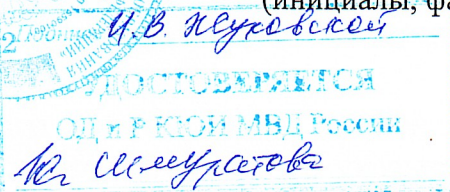 (инициалы, фа
И.В. Жуковской
УДОСТОВЕРЯЕТСЯ
ОД и Р КЮИ МВД России
Шмуратова